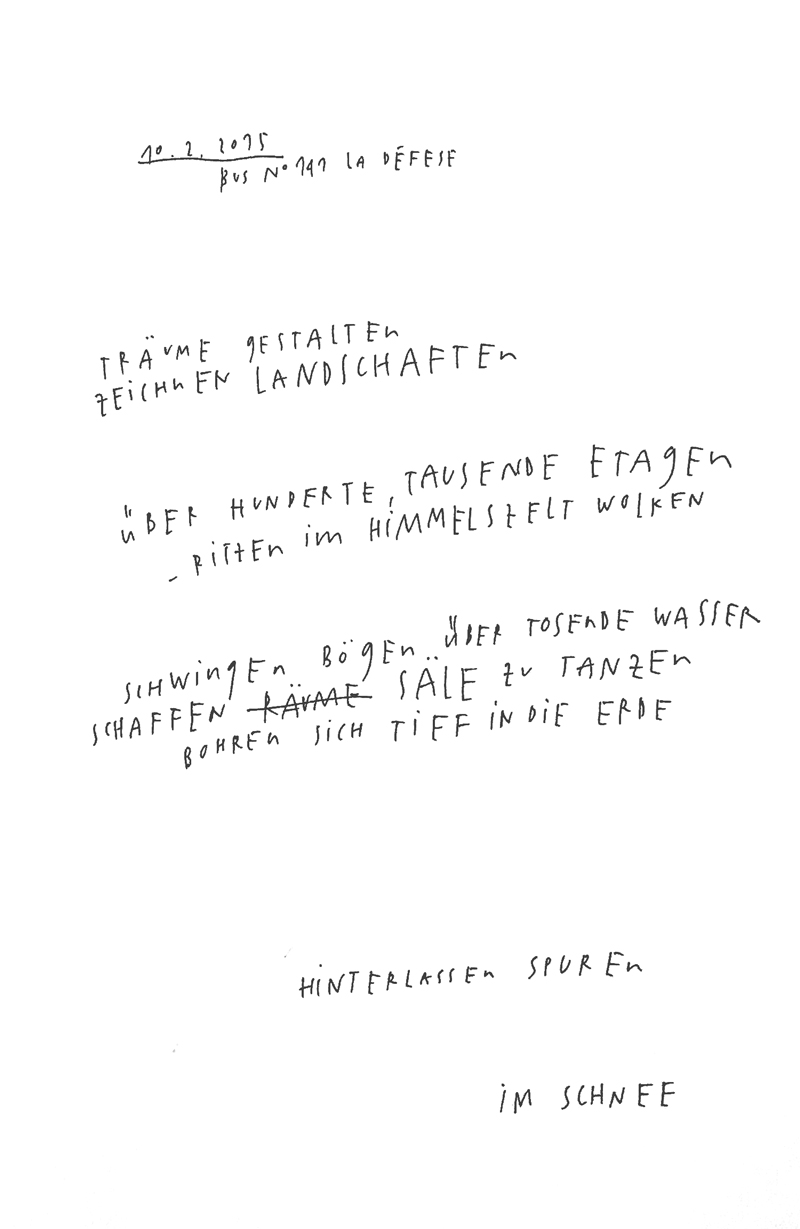 10.2.2015
BUS N° 141 LA DÉFESE
TRÄUME gESTALTEn
ZEiCHnEN LANDSCHAFTEn
üBER HUNDERTE, TAUSENDE ETAgEn
- RiTTEn im HiMMELSZELT WOLKEN
SCHWingEn BögEn üBER TOSEnDE WASSER
SCHAFFEN RÄUME SÄLE ZU TANZEn
BOHREn SiCH TiEFF iN DiE ERDE
HiNTERLASSEn SPUREn
iM SCHNEE